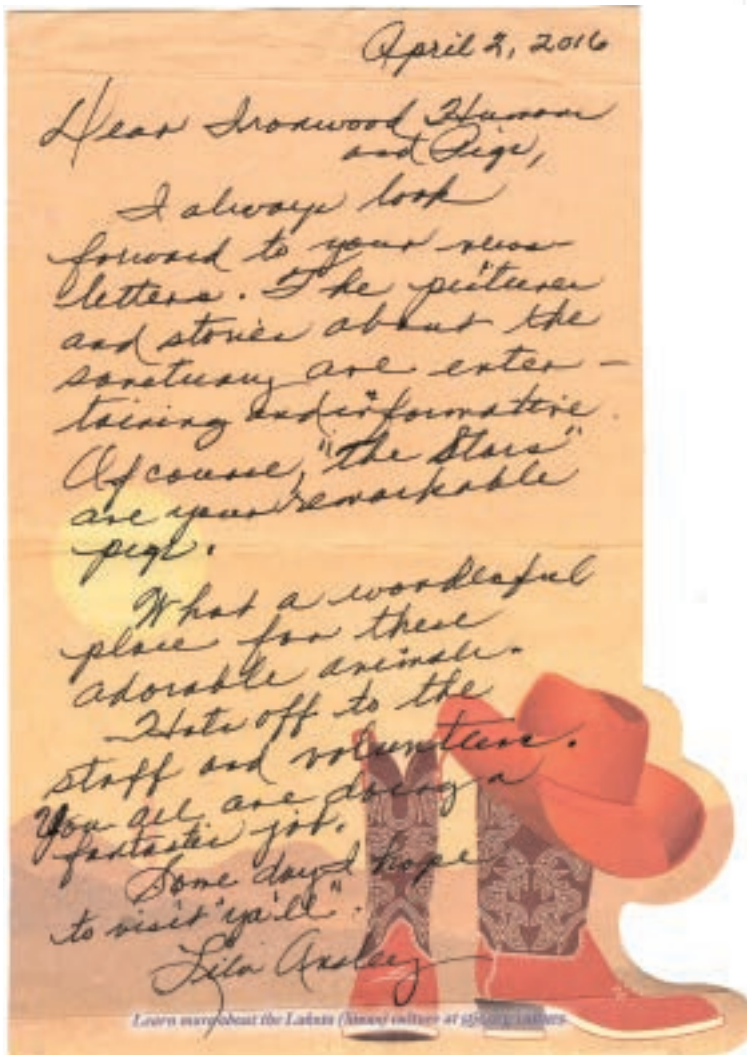 April 2, 2016
Dear Ironwood Humans
and Pigs,
I always look
forward to your news-
letters. The pictures
and stories about the
sanctuary are enter-
taining and informative.
Of course, "the Stars"
are your remarkable
pigs.
What a wonderful
place for these
adorable animals.
Hats off to the
staff and volunteers.
You all are doing a
fantastic job.
Some day I hope
to visit "ya'll".
Learn more about the Lakota (Sioux) culture at